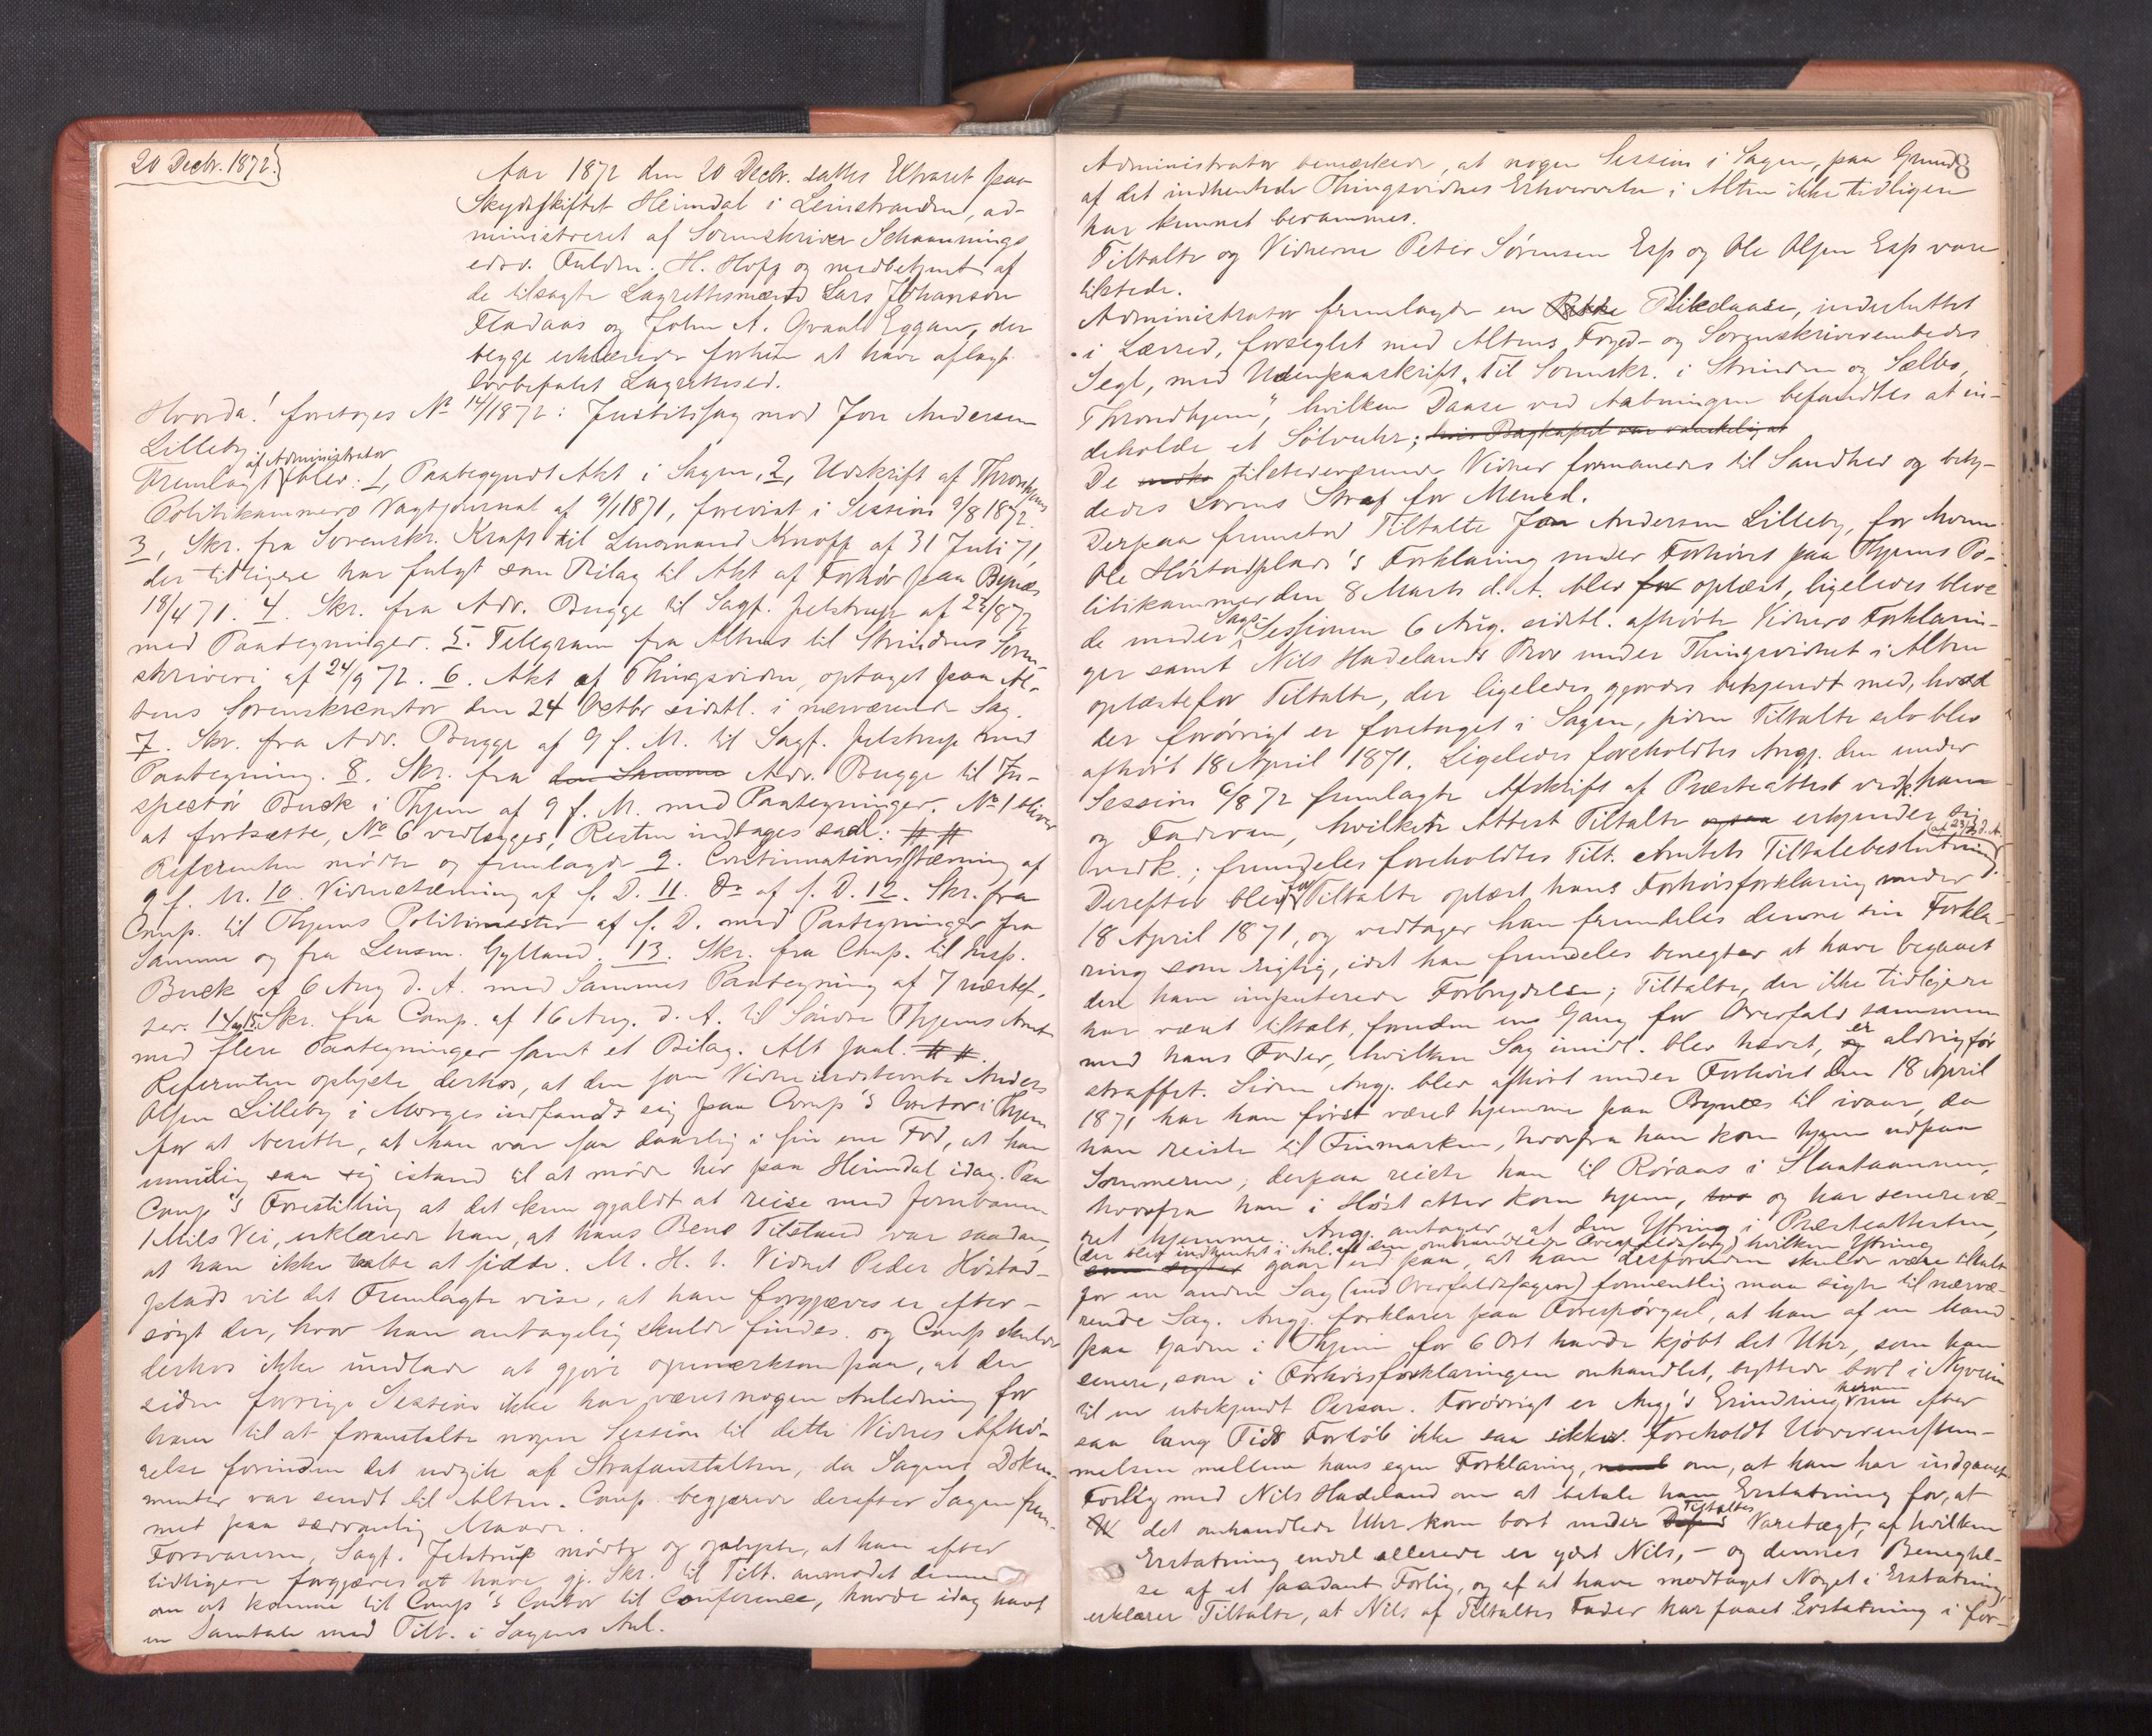 20 Decbr. 1872.
Aar 1872 den 20 Decbr. sattes Extraret paa
Skydsskiftet Heimdal i Leinstranden, ad-
ministreret af Sorenskriver Schannings
edsv. Fuldm. H. Hoff og medbetjent af
de tilsagte Lagrettesmænd Lars Johanson
Fladaas og John A. Eggan, der
begge erklærede forhen at have aflagt
lovbefalet Lagrettesed.
Hvorda! foretoges No 14/1872: Justitssag mod Jon Andersen
Lilleby
af Administrator
Fremlagt blev: 1, Paabegyndt Akt i Sagen, 2, Udskrift af Throndhjems
Politikammers Vagtjournal af 9/1 1871, forevist i Session 9/8 1872.
3, Skr. fra Sorenskr. Kraft til Lensmand Knoff af 31 Juli 71,
der tidligere har fulgt som Bilag til Akt af Forhør paa Bynæs
18/4 71. 4. Skr. fra Adv. Bugge til Sagf. Jelstrup af 22/8 72
med Paategninger. 5. Telegram fra Altens til Strindens Soren-
skriveri af 24/9 72. 6. Akt af Thingsvidne, optaget paa Al-
tens Sorenskrivercontor den 24 Octbr sidstl. i nærværende Sag.
7. Skr. fra Adv. Bugge af 9 f. M. til Sagf. Jelstrup med
Paategning. 8. Skr. fra den Samme Adv. Bugge til In-
spectør Buck i Thjem af 9 f. M. med Paategninger. No 1 bliver
at fortsætte, No 6 vedlægges, Resten indtages saal: ## ##
Referenten mødte og fremlagde 9. Continuationsstævning af
9 f. M. 10. Vidnestævning af s. D. 11. Do af s. D. 12. Skr. fra
Comp. til Thjems Politimester af s. D. med Paategninger fra
Samme og fra Lensm. Gylland. 13. Skr. fra Comp. til Insp.
Buck af 6 Aug d. A. med Sammes Paategning af 7 næstef.
14 og 15. Skr. fra Comp. af 16 Aug. d. A. til Søndre Thjems Amt
med flere Paategninger samt et Bilag. Alt saal. ## ##.
Referenten oplyste derhos, at den som Vidne indstævnte Anders
Olsen Lilleby i Morges indfandt sig paa Comp's Contor i Thjem
for at berette, at han var saa daarlig i sin ene Fod, at han
umulig saa sig istand til at møde her paa Heimdal idag. Paa
Comp's Forestilling at det kun gjaldt at reise med Jernbanen
1 Mils Vei, erklærede han, at hans Bens Tilstand var saadan,
at han ikke taalte at sidde. M. H. t. Vidnet Peder Höstad-
plads vil det Fremlagte vise, at han forgjæves er efter-
søgt der, hvor han antagelig skulde findes. og Comp skulde
derhos ikke undlade at gjøre opmærksom paa, at der
siden forrige Session ikke har været nogen Anledning for
ham til at foranstalte nogen Session til dette Vidnes Afhø-
relse forinden det udgik af Strafanstalten, da Sagens Doku-
menter var sendt til Alten. Comp. begjærede derefter Sagen frem-
met paa sædvanlig Maade.
Forsvareren, Sagf. Jelstrup mødte og oplyste, at han efter
tidligere forgjæves at have gj. Skr. til Tilt. anmodet denne
om at komme til Comp's Contor til Conference, havde idag havt
en Samtale med Tilt. i Sagens Anl.
8
Administrator bemærkede, at nogen Session i Sagen, paa Grund
af det indhentede Thingsvidnes Erhvervelse i Alten ikke tidligere
har kunnet berammes.
Tiltalte og Vidnerne Peter Sørensen Esp og Ole Olsen Esp vare
tilstede.
Administrator fremlagde en Blikdaase, indesluttet
i Lærred, forseglet med Altens Foged- og Sorenskriverembedes
Segl, med Udenpaaskrift „til Sorenskr. i Strinden og Sælbo,
Throndhjem“, hvilken Daase ved Aabningen befandtes at in-
deholde et Sølvuhr; hvis Bagkapsel var vanskelig at
De tilstedeværende Vidner formanedes til Sandhed og bety-
dedes Lovens Straf for Mened.
Derpaa fremstod Tiltalte Jon Andersen Lilleby, for hvem
Ole Höstadplads's Forklaring under Forhøret paa Thjems Po-
litikammer den 8 Marts d. A. blev for oplæst, ligeledes bleve
de under Sags-Sessionen 6 Aug. sidstl. afhørte Vidners Forklarin-
ger samt Nils Hadelands Prov under Thingsvidnet i Alten
oplæste for Tiltalte, der ligeledes gjordes bekjendt med, hvad
der forøvrigt er foretaget i Sagen, siden Tiltalte selv blev
afhørt 18 April 1871. Ligeledes foreholdtes Angj. den under
Session 6/8 72 fremlagte Afskrift af Præsteattest vedk. ham
og Faderen, hvilken Attest Tiltalte ogsaa erkjender sig
vedk.; fremdeles foreholdtes Tilt. Amtets Tiltalebeslutning (af 23/3 d. A.)
Derefter blev for Tiltalte oplæst hans Forhørsforklaring under
18 April 1871, og vedtager han fremdeles denne sin Forkla-
ring som rigtig, idet han fremdeles benegter at have begaaet
den ham imputerede Forbrydelse; Tiltalte, der ikke tidligere
har været tiltalt, foruden en Gang for Overfald sammen
med hans Fader, hvilken Sag imidl. blev hævet, er aldrig før
straffet. Siden Angj. blev afhørt under Forhøret den 18 April
1871 har han først været hjemme paa Bynæs til ivaar, da
han reiste til Finmarken, hvorfra han kom hjem udpaa
Sommeren; derpaa reiste han til Røraas i Slaataannen,
hvorfra han i Høst atter kom hjem, og har senere væ-
ret hjemme. Angj. antager at den Yttring i Præsteattesten,
(der blev indhentet i Anl. af den omhandlede Overfaldssag) hvilken Yttring
som sigter gaar ud paa, at han desforuden skulde være tiltalt
for en anden Sag (end Overfaldssagen) formentlig maa sigte til nærvæ-
rende Sag. Angj. forklarer paa Forespørgsel, at han af en Mand
paa Gaden i Thjem for 6 Ort havde kjøbt det Uhr, som han
senere, som i Forhørsforklaringen omhandlet, byttede bort i Nyveien
til en ubekjendt Person. Forøvrigt er Angj's Erindring herom nu efter
saa lang Tids Forløb ikke saa sikker. Foreholdt Uoverensstem-
melsen mellem hans egen Forklaring, om, at han har indgaaet
Forlig med Nils Hadeland om at betale ham Erstatning for, at
det omhandlede Uhr kom bort under Tiltaltes Varetægt, af hvilken
Erstatning endel allerede er ydet Nils, – og dennes Benegtel-
se af et saadant Forlig, og af at have modtaget Noget i Erstatning,
erklærer Tiltalte, at Nils af Tiltaltes Fader har faaet Erstatning i for-